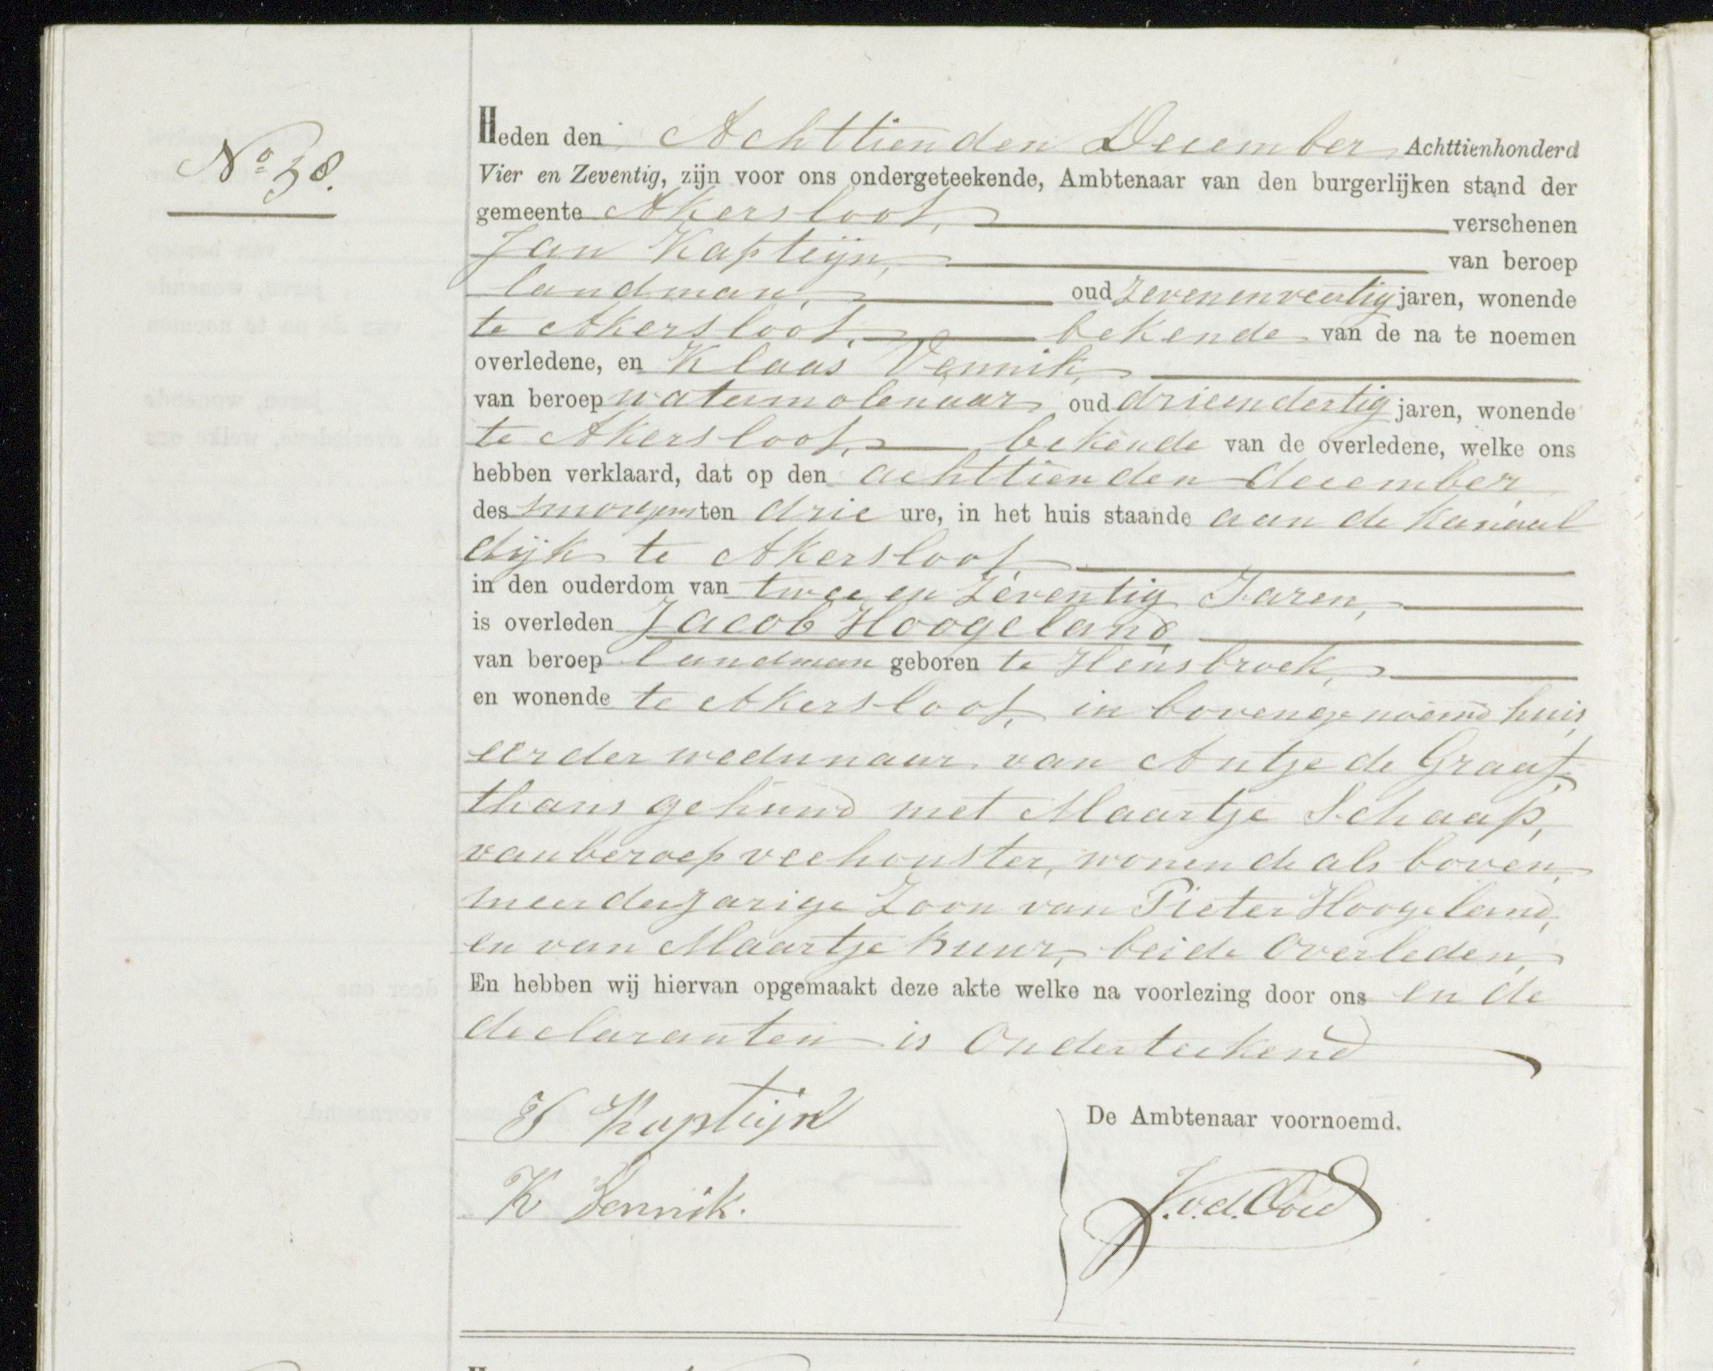 No 38.
Heden den Achttienden December Achttienhonderd
Vier en Zeventig, zijn voor ons ondergeteekende, Ambtenaar van den burgerlijken stand der
gemeente Akersloot, verschenen
Jan Kapteijn, van beroep
landman, oud zevenenveertig jaren, wonende
te Akersloot, bekende van de na te noemen
overledene, en Klaas Vennik,
van beroep watermolenaar oud drieendertig jaren, wonende
te Akersloot, bekende van de overledene, welke ons
hebben verklaard, dat op den achttienden december
des smorgens ten drie ure, in het huis staande aan de Kanaal
dijk te Akersloot,
in den ouderdom van twee en Zeventig Jaren,
is overleden Jacob Hoogeland
van beroep landman geboren te Hensbroek,
en wonende te Akersloot, in bovengenoemd huis,
eerder wedunaar van Antje de Graaf,
thans gehuwd met Maartje Schaap,
van beroep veehoudster, wonende als boven,
meerderjarige Zoon van Pieter Hoogeland,
en van Maartje Kuur, beide Overleden,
En hebben wij hiervan opgemaakt deze akte welke na voorlezing door ons en de
declaranten is Onderteekend
J Kapteijn
De Ambtenaar voornoemd.
K Vennik.
J. v. d. Oord